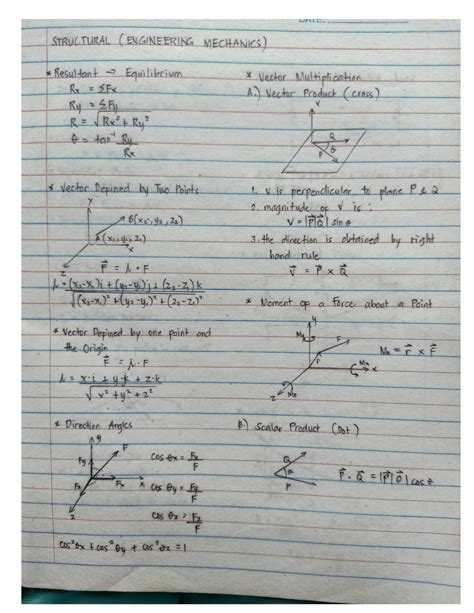 DATE:
STRUCTURAL (ENGINEERING MECHANICS)
* Resultant → Equilibrium
Rx = ΣFx
Ry = ΣFy
R = √Rx² + Ry²
θ = tan⁻¹ Ry/Rx
* Vector Defined by Two Points
y
B(x₂, y₂, z₂)
A(x₁, y₁, z₁)
x
z
F = λ · F
λ = (x₂-x₁)i + (y₂-y₁)j + (z₂-z₁)k
√(x₂-x₁)² + (y₂-y₁)² + (z₂-z₁)²
* Vector Defined by one point and
the Origin
F = λ · F
λ = x·i + y·k + z·k
√x² + y² + z²
* Direction Angles
y
F
Fy
Fz
Fx
x
z
cos θx = Fx/F
cos θy = Fy/F
cos θz = Fz/F
cos²θx + cos²θy + cos²θz = 1
* Vector Multiplication
A.) Vector Product (cross)
V
Q
P
θ
1. V is perpendicular to plane P & Q
2. magnitude of V is :
V = |P||Q| sin θ
3. the direction is obtained by right
hand rule
V = P × Q
* Moment of a Force about a Point
y
F
r
x
z
Mz
M = r × F
B) Scalar Product (Dot)
Q
θ
P
P · Q = |P||Q| cos θ